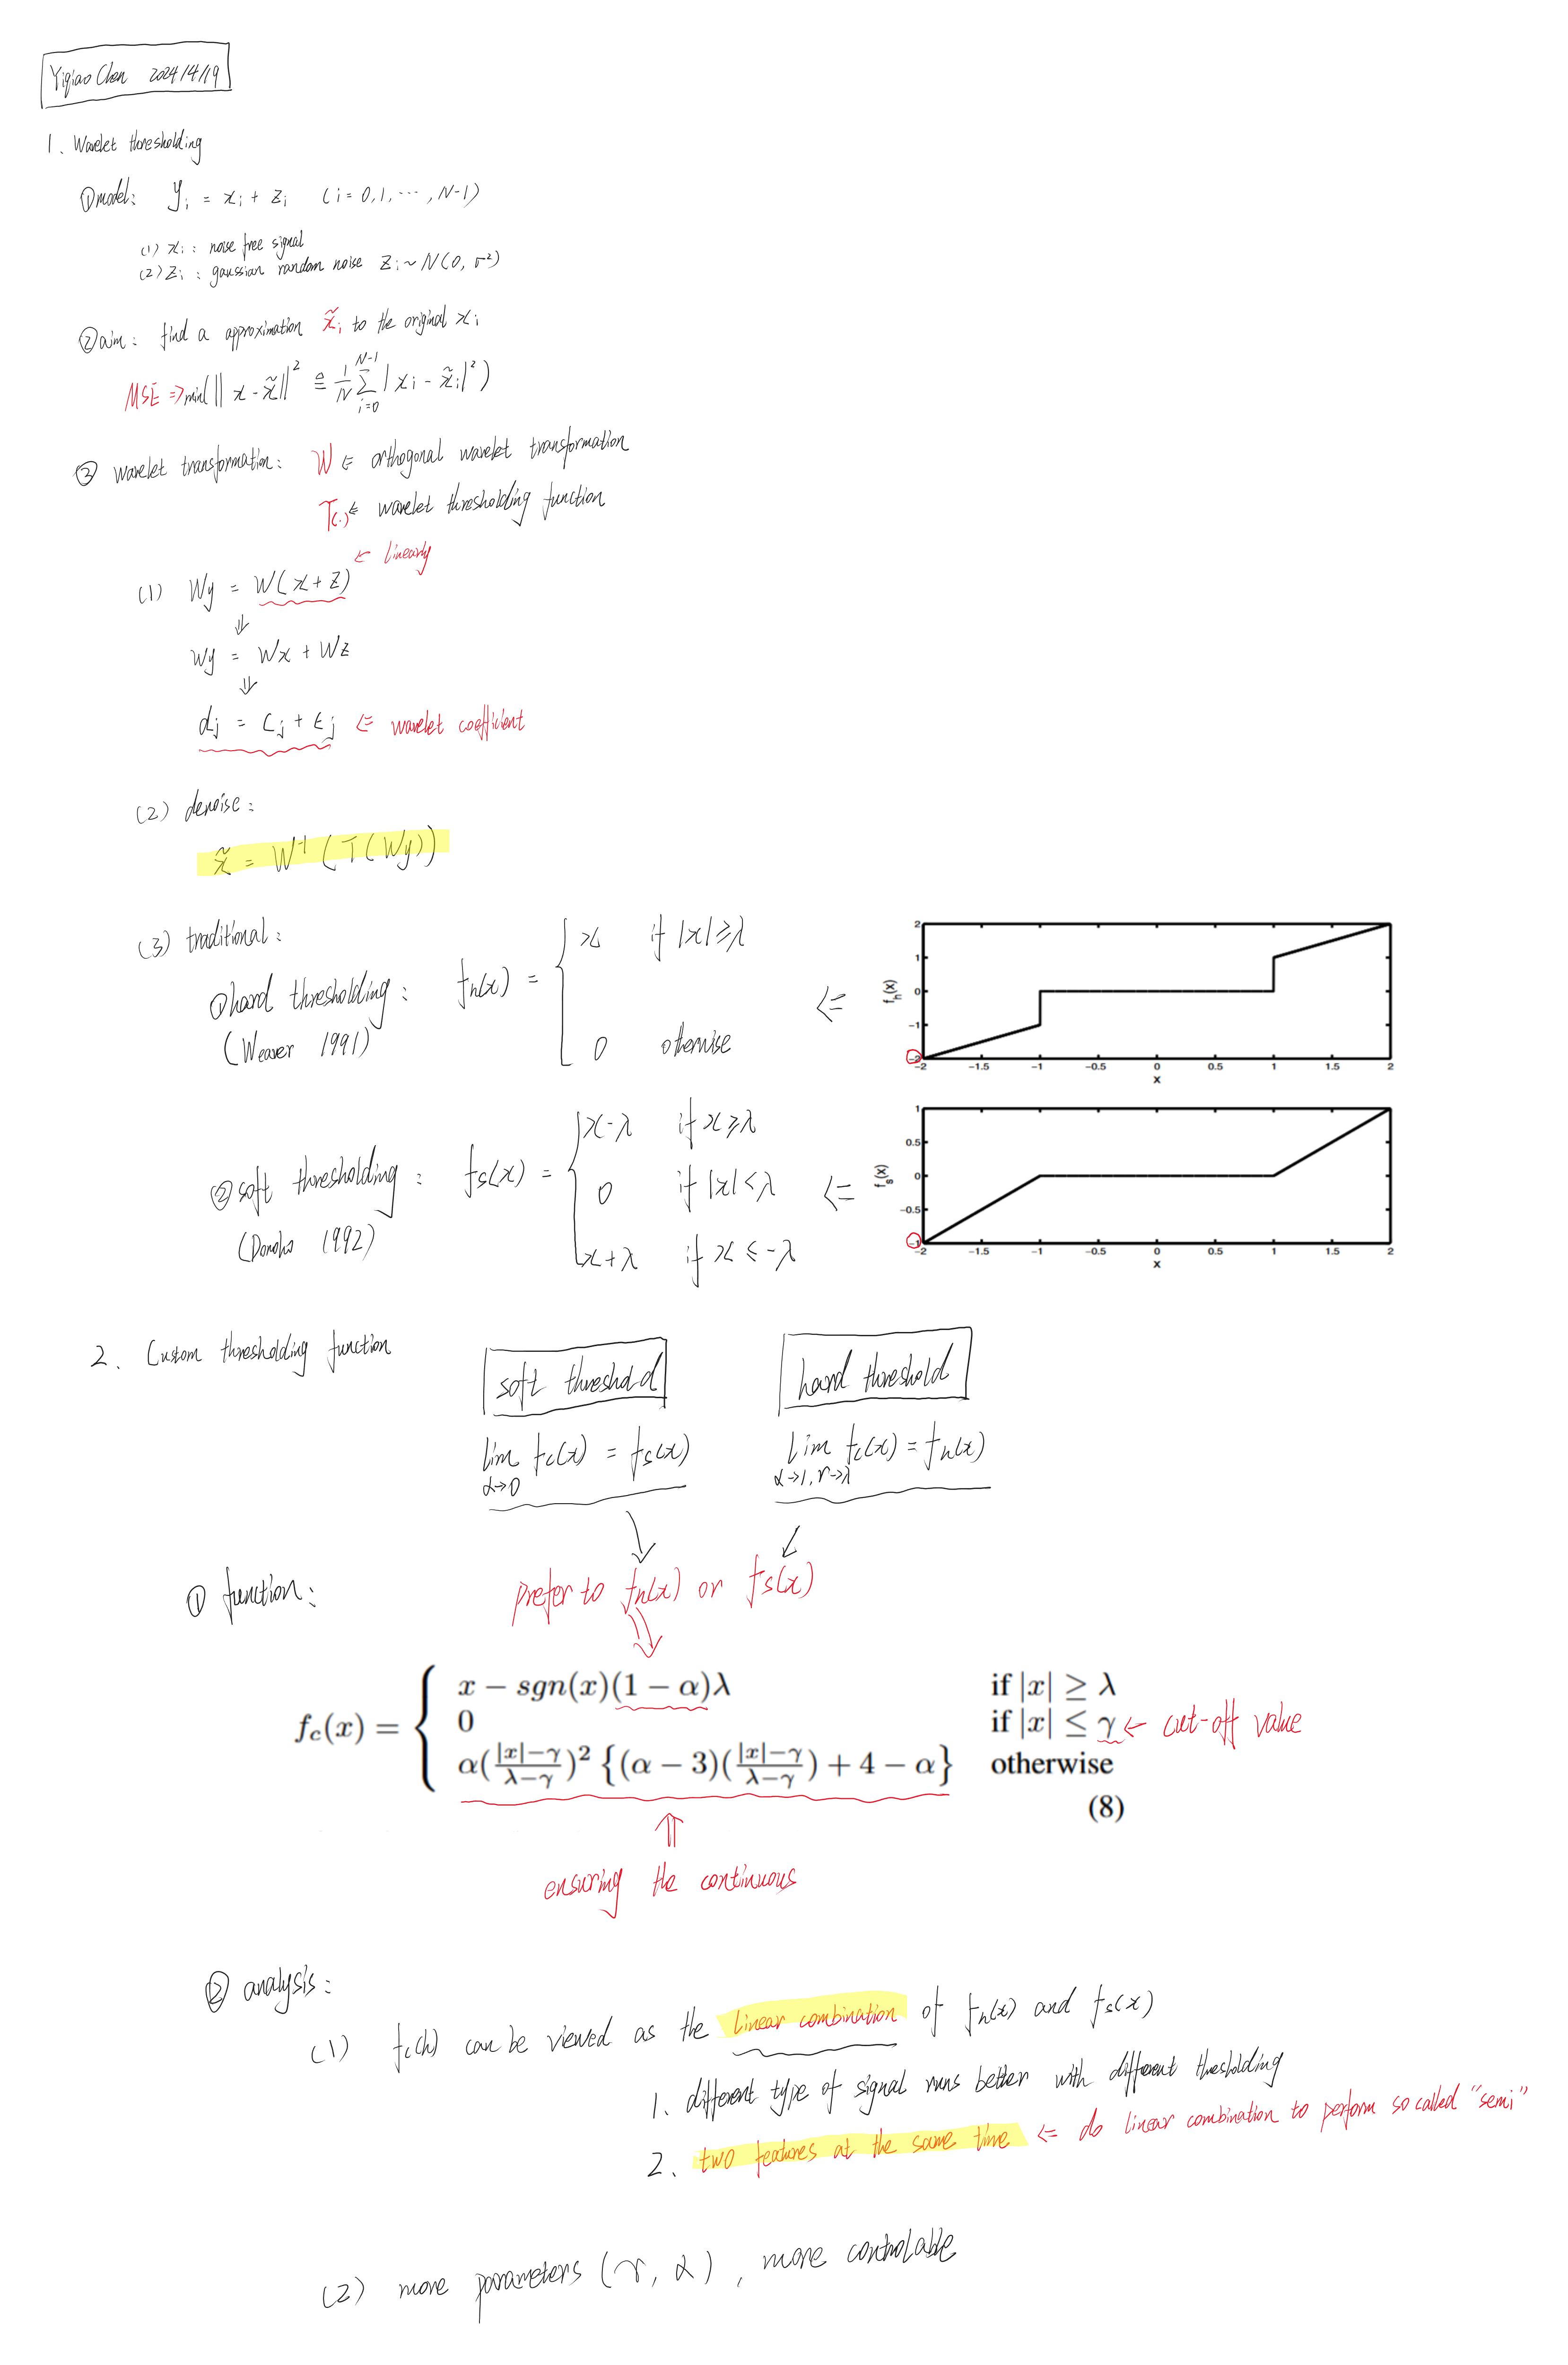 Yiqiao Chen 2024/4/19
1. Wavelet thresholding
① model: yᵢ = xᵢ + zᵢ (i = 0,1,⋯,N-1)
(1) xᵢ : noise free signal
(2) zᵢ : gaussian random noise zᵢ ~ N(0, σ²)
② aim: find a approximation x̃ᵢ to the original xᵢ
MSE => min(‖x - x̃‖² ≙ 1/N Σ_{i=0}^{N-1} |xᵢ - x̃ᵢ|²)
③ wavelet transformation: W ⇐ orthogonal wavelet transformation
T(.) ⇐ wavelet thresholding function
⇐ linearly
(1) Wy = W(x+z)
⇓
Wy = Wx + Wz
⇓
dⱼ = cⱼ + εⱼ ⇐ wavelet coefficient
(2) denoise:
x̃ = W⁻¹(T(Wy))
(3) traditional:
① hard thresholding: fh(x) = { x if |x| ≥ λ
0 otherwise
(Weaver 1991)
⇐
2
1
0
-1
-2
fh(x)
-2 -1.5 -1 -0.5 0 0.5 1 1.5 2
x
② soft thresholding: fs(x) = { x-λ if x ≥ λ
0 if |x| < λ
x+λ if x ≤ -λ
(Donoho 1992)
⇐
1
0.5
0
-0.5
-1
fs(x)
-2 -1.5 -1 -0.5 0 0.5 1 1.5 2
x
2. Custom thresholding function
soft threshold hard threshold
lim_{α→0} fc(x) = fs(x) lim_{α→1, r→λ} fc(x) = fh(x)
① function:
prefer to fh(x) or fs(x)
fc(x) = { x − sgn(x)(1 − α)λ if |x| ≥ λ
0 if |x| ≤ γ ← cut-off value
α((|x|−γ)/(λ−γ))² {(α − 3)((|x|−γ)/(λ−γ)) + 4 − α} otherwise
(8)
⇑
ensuring the continuous
② analysis:
(1) fc(h) can be viewed as the linear combination of fh(x) and fs(x)
1. different type of signal runs better with different thesholding
2. two features at the same time ⇐ do linear combination to perform so called "semi"
(2) more parameters (r, α), more controlable